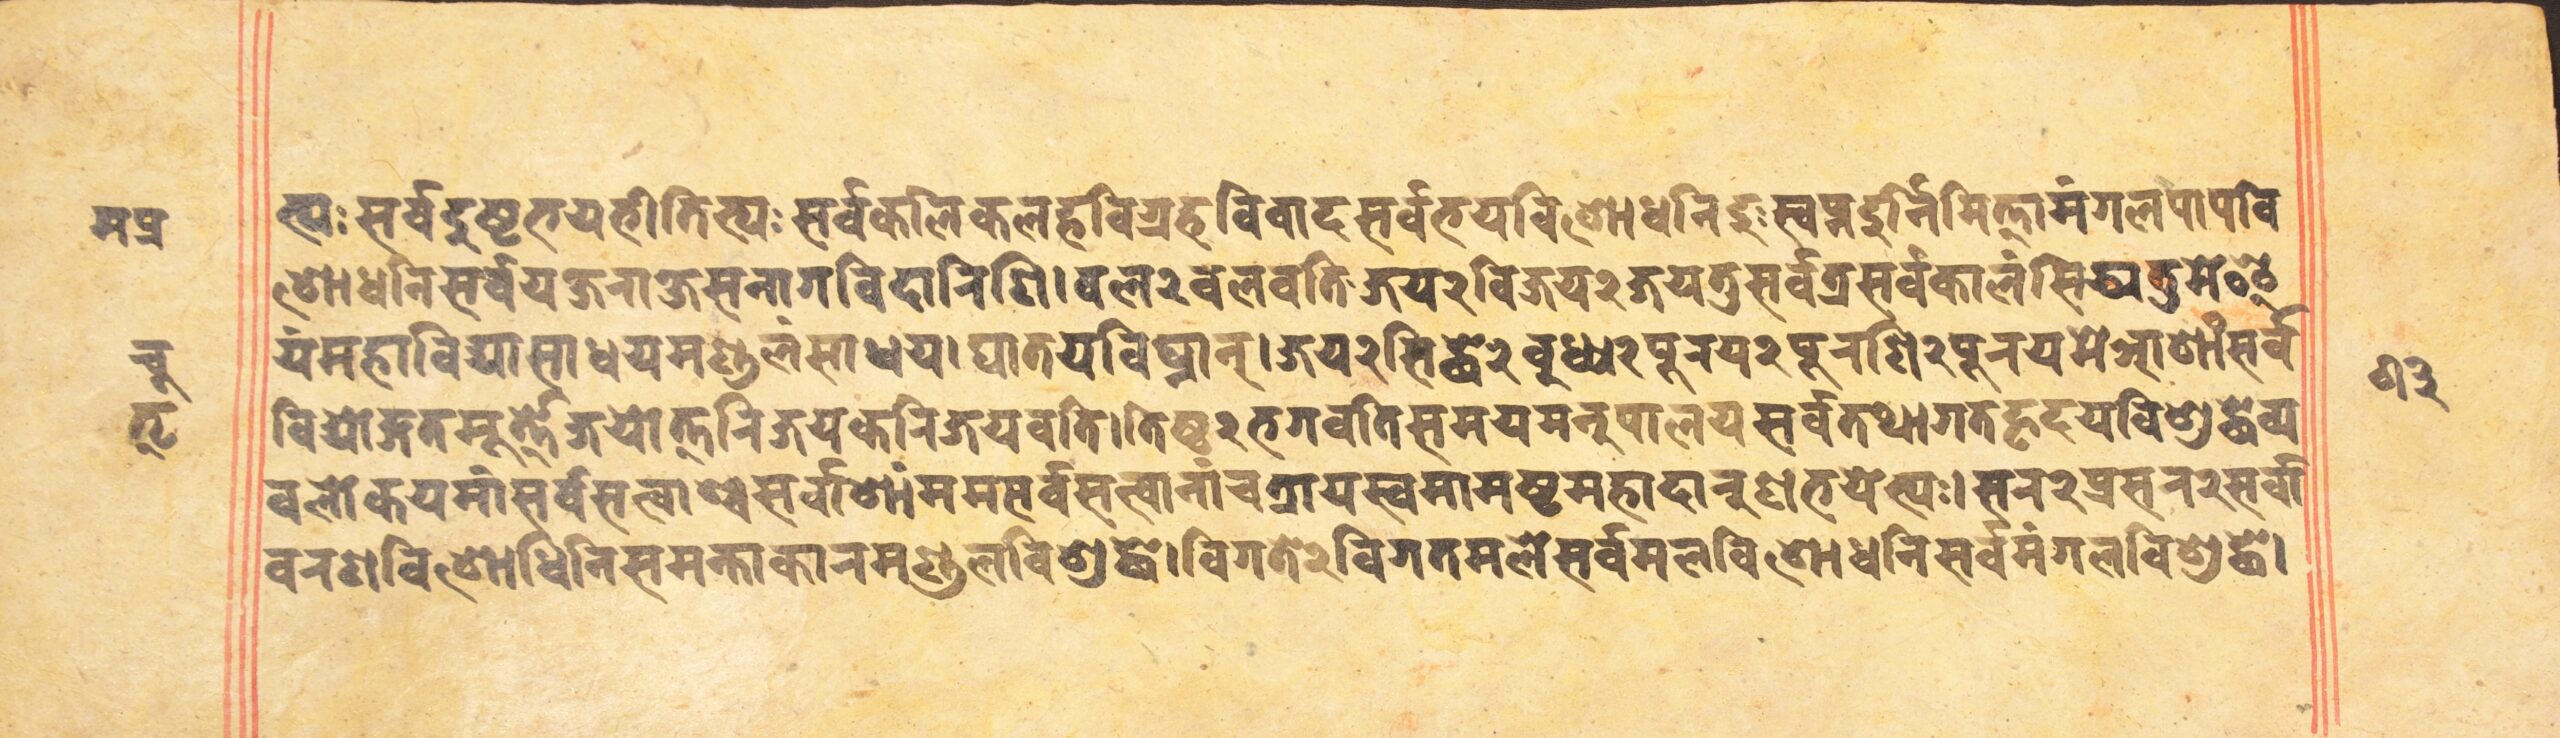 मप्र
भ्यः सर्वदुष्टभयभीतिभ्यः सर्वकलिकलहविग्रहविवादसर्वभयविशोधनिदुःस्वप्नदुर्निमित्तामंगलपापवि
शोधनिसर्वयक्षराक्षसनागविदारिणि। वल२वलवतिजय२विजय२जयतुसर्वत्रसर्वकालंसिध्यतुमेइ
यंमहाविद्यासाधयमण्डलंसाधय। घातयविघ्नान्। जय२सिद्धे२वुध्य२पूरय२पूरणि२पूरयमेआशांसर्व
विद्योङ्गतमूर्त्तेजयोत्तरिजयकरिजयवति। तिष्ठ२भगवतिसमयमनुपालयसर्वतथागतहृदयविशुद्धेव्य
वलोकयमांसर्वसत्वाञ्चसर्वाशांममसर्वसत्वानांचत्रायस्वमामष्टमहादारुणभयेभ्यः। सर२प्रसर२सर्वा
वरणविशोधिनिसमन्ताकारमण्डलविशुद्धे। विगते२विगतमलेसर्वमलविशोधनिसर्वमंगलविशुद्धे।